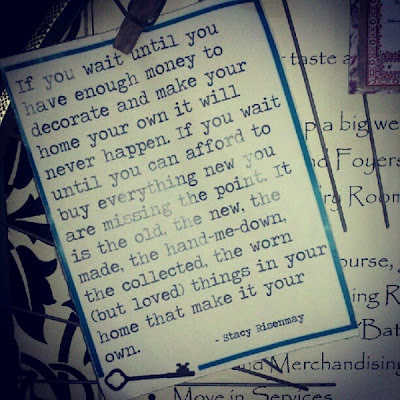 If you wait until you
have enough money to
decorate and make your
home your own it will
never happen. If you wait
until you can afford to
buy everything new you
are missing the point. It
is the old, the new, the
made, the hand-me-down,
the collected, the worn
(but loved) things in your
home that make it your
own.
- Stacy Risenmay
taste a
a big we
Foyers
Room
and Merchandising
Move in Services